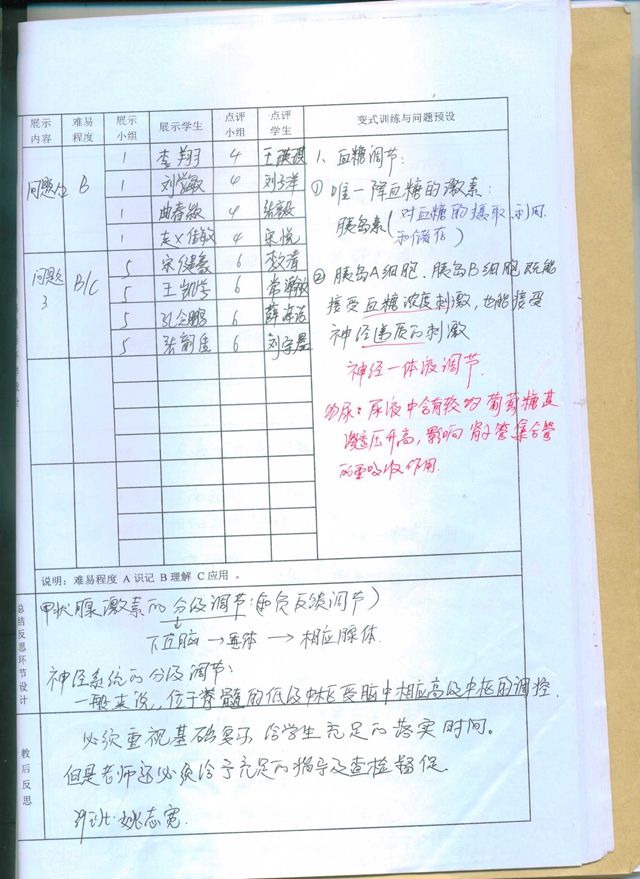 展示内容 难易程度 展示小组 展示学生 点评小组 点评学生 变式训练与问题预设
问题 2 B 1 李翔羽 4
1 刘学敏 4 刘子洋
1 曲春 4 张
1 4 宋悦
问题 3 B/C 5 宋 6 李
5 王凯 6
5 孔令鹏 6 薛
5 张 6 刘宇
1、血糖调节:
① 唯一降血糖的激素:
胰岛素(对血糖的摄取、利用
和储存)
② 胰岛A细胞、胰岛B细胞既能
接受血糖浓度刺激,也能接受
神经递质的刺激
神经一体液调节.
尿:尿液中含有较多葡萄糖其
渗透压升高,影响肾小管集合管
的重吸收作用.
说明:难易程度 A 识记 B 理解 C 应用 。
总结反思环节设计
甲状腺激素的分级调节(负反馈调节)
下丘脑→垂体→相应腺体.
神经系统的分级调节:
一般来说,位于脊髓的低级中枢受脑中相应高级中枢的调控.
教后反思
必须重视基础复习,给学生充足的落实时间。
但是老师还必须给予充足的指导及查检督促.
姚志宽.